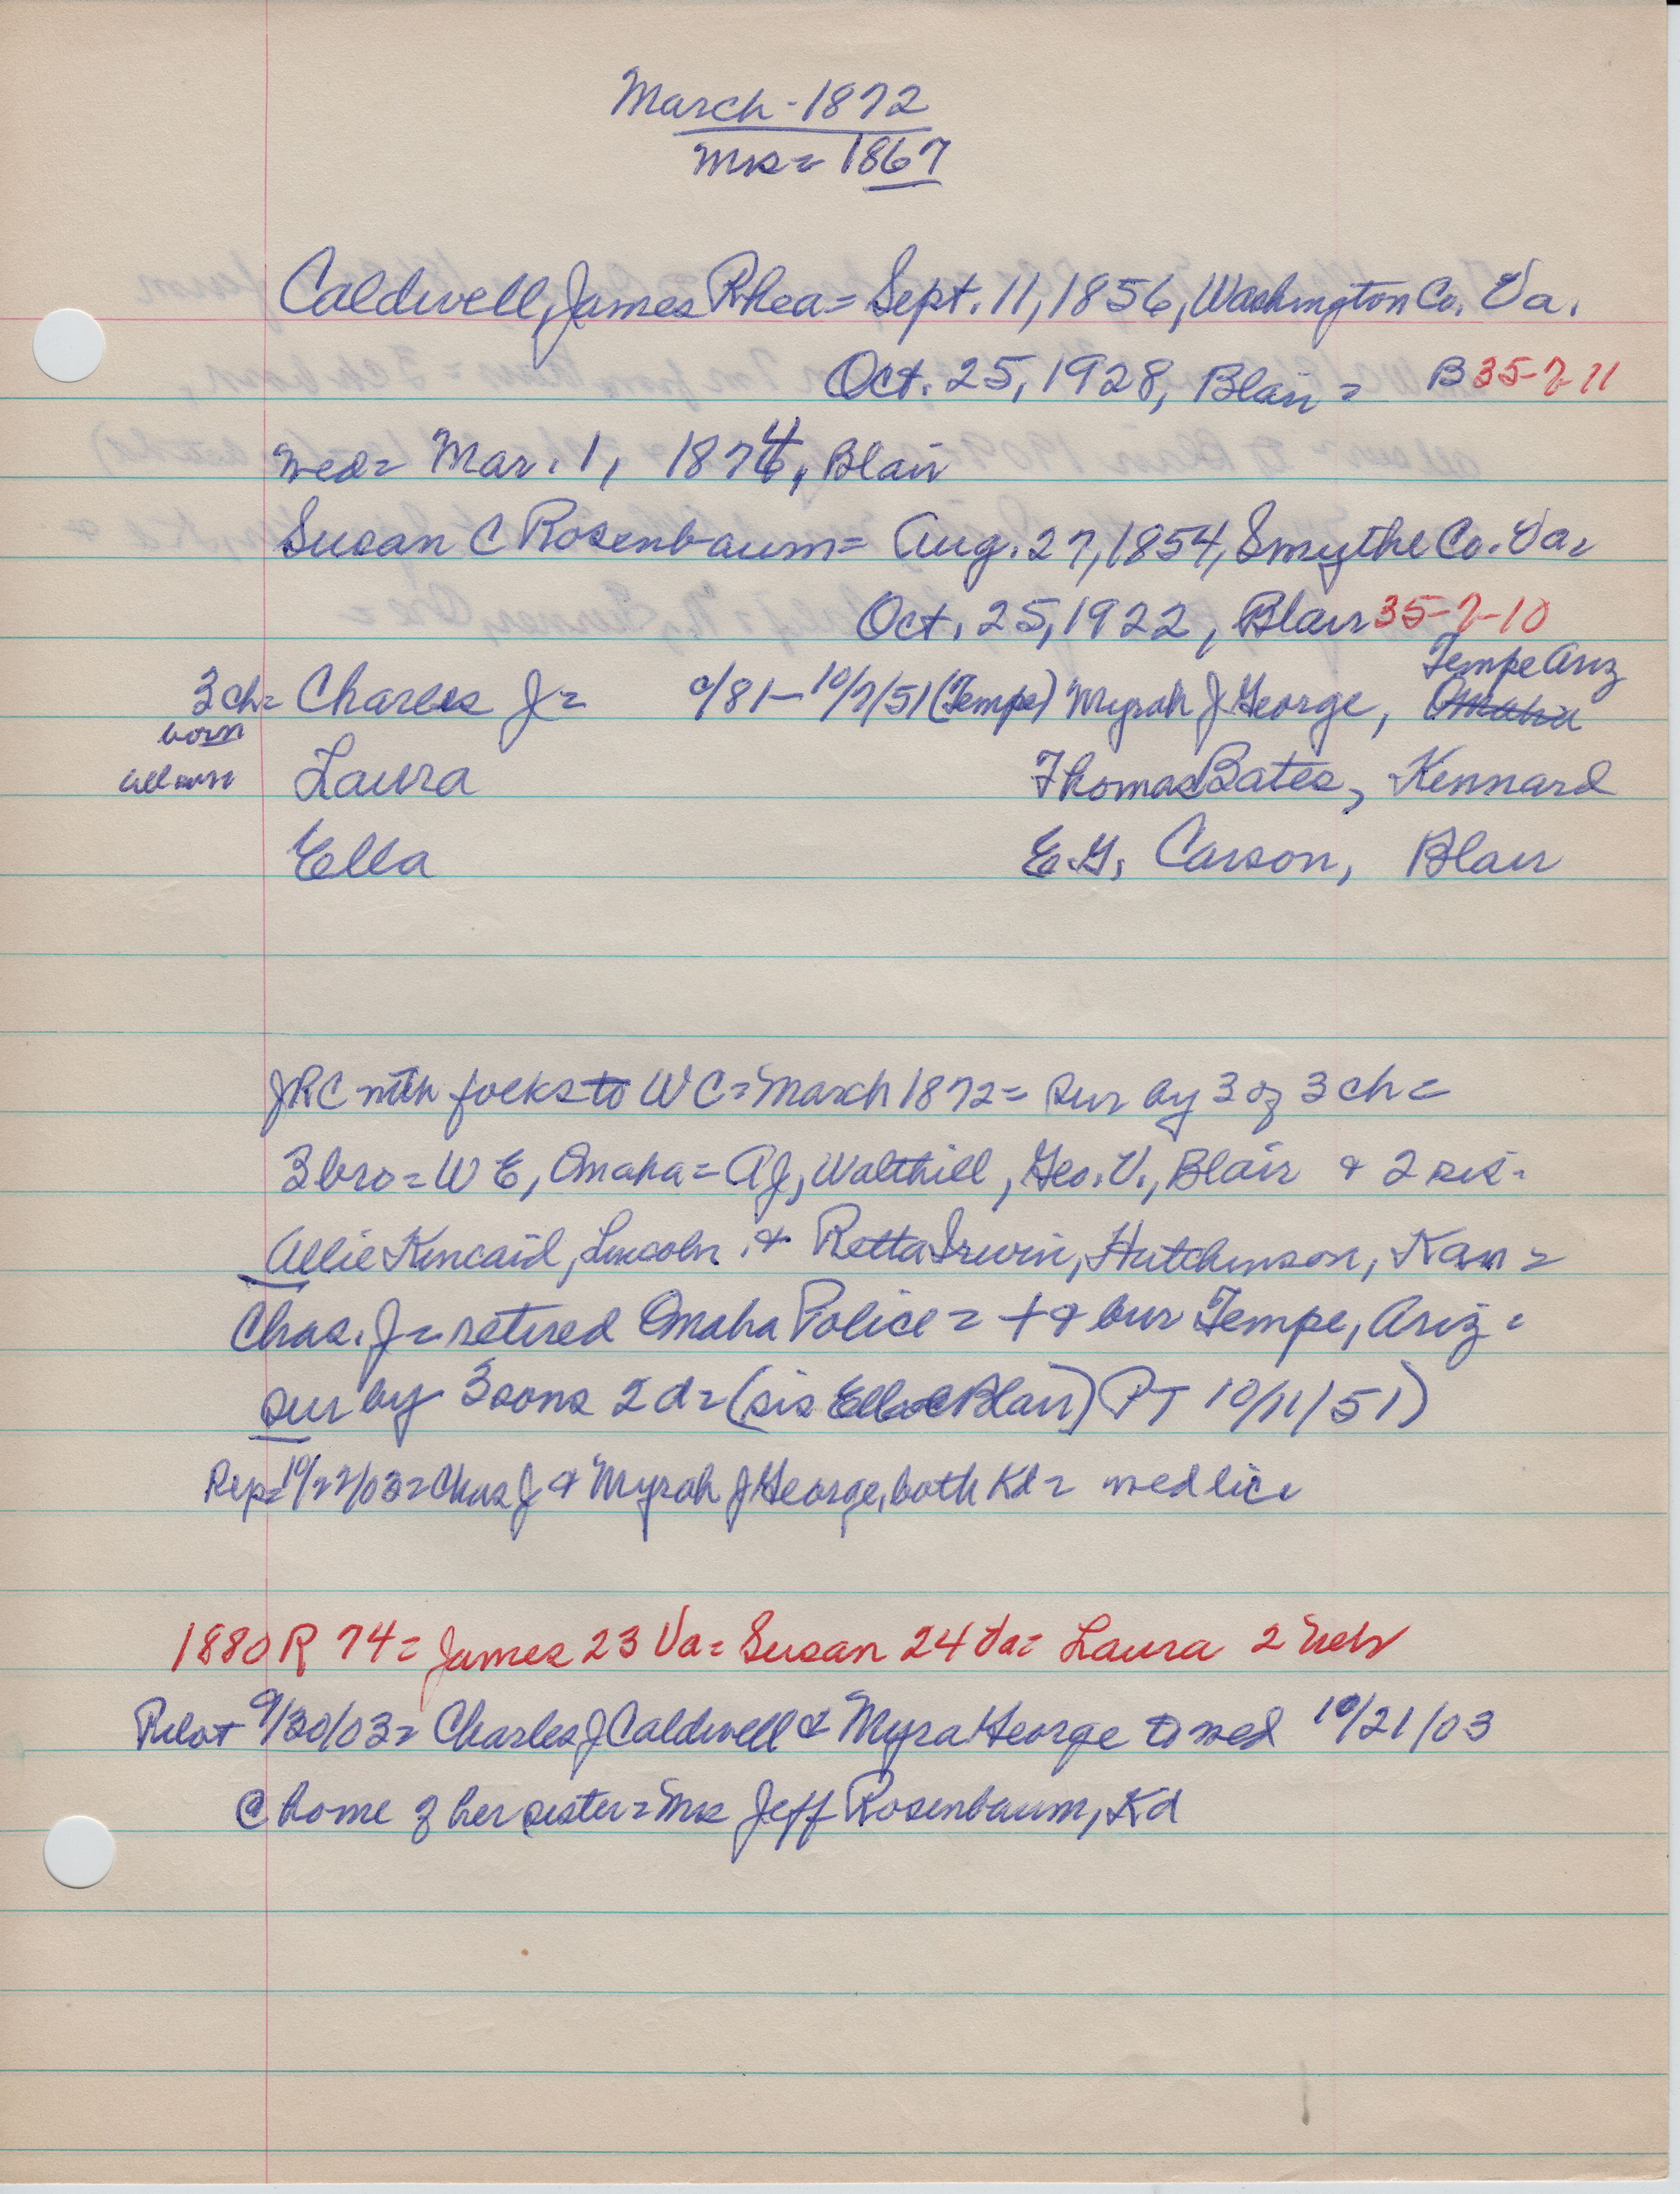 March - 1872
Mrs = 1867
Caldwell, James Rhea = Sept. 11, 1856, Washington Co. Va.
Oct. 25, 1928, Blair = B 35-2-11
wed = Mar. 1, 1874, Blair
Susan C Rosenbaum = Aug. 27, 1854, Smythe Co. Va =
Oct. 25, 1922, Blair 35-2-10
Tempe Ariz
3 ch = Charles J = /81 - 10/7/51 (Tempe) Myrah J George, Omaha
born
all sur Laura Thomas Bates, Kennard
Ella E.G. Carson, Blair
JRC with folks to WC = March 1872 = sur by 3 of 3 ch =
3 bro = W E, Omaha = AJ, Walthill, Geo. V., Blair & 2 sis =
Allie Kincaid, Lincoln & Retta Irwin, Hutchinson, Kan =
Chas. J = retired Omaha Police = + & bur Tempe, Ariz =
sur by 3 sons 2 d = (sis Ella C Blair) PT 10/11/51)
Rep = 10/22/03 = Chas J & Myrah J George, both Kd = wed lic =
1880 R 74 = James 23 Va = Susan 24 Va = Laura 2 Neb
Pilot 9/30/03 = Charles J Caldwell & Myra George to wed 10/21/03
@ home of her sister = Mrs Jeff Rosenbaum, Kd